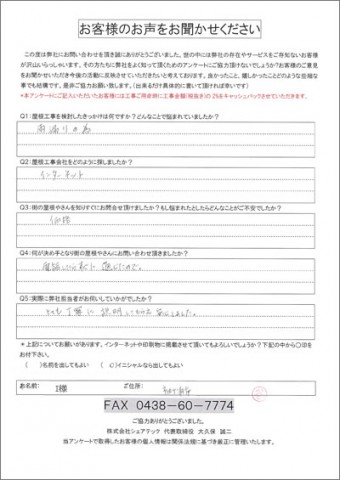 お客様のお声をお聞かせください
この度は弊社にお問い合わせを頂き誠にありがとうございました。世の中には弊社の存在やサービスをご存知ないお客様
が沢山いらっしゃいます。その方たちに弊社をよく知って頂くためのアンケートにご協力頂けないでしょうか?お客様のご意見
をお聞かせいただき今後の活動に反映させていただきたいと考えております。良かったこと、嬉しかったことどのような些細な
事でも結構です。是非ご協力お願い致します。(出来るだけ具体的に書いて頂ければ幸いです)
*本アンケートにご記入いただいたお客様には工事ご用命時に工事金額(税抜き)の2%をキャッシュバックさせていただきます。
Q1:屋根工事を検討したきっかけは何ですか?どんなことで悩まれていましたか?
雨漏りの為
Q2:屋根工事会社をどのように探しましたか?
インターネット
Q3:街の屋根やさんを知りすぐにお問合せ頂けましたか?もし悩まれたとしたらどんなことがご不安でしたか?
価格
Q4:何が決め手となり街の屋根やさんにお問い合わせ頂きましたか?
Q5:実際に弊社担当者がお伺いしていかがでしたか?
とても丁寧に説明して
*上記についてお願いがあります。インターネットや印刷物に掲載させて頂いてもよろしいでしょうか?下記の中から〇印を
お付下さい。
( )名前を出してもよい ( )イニシャルなら出してもよい
お名前: I様 ご住所:
FAX 0438-60-7774
ご協力ありがとうございました。
株式会社シェアテック 代表取締役 大久保 誠二
当アンケートで取得したお客様の個人情報は関係法規に基づき厳正に管理いたします。